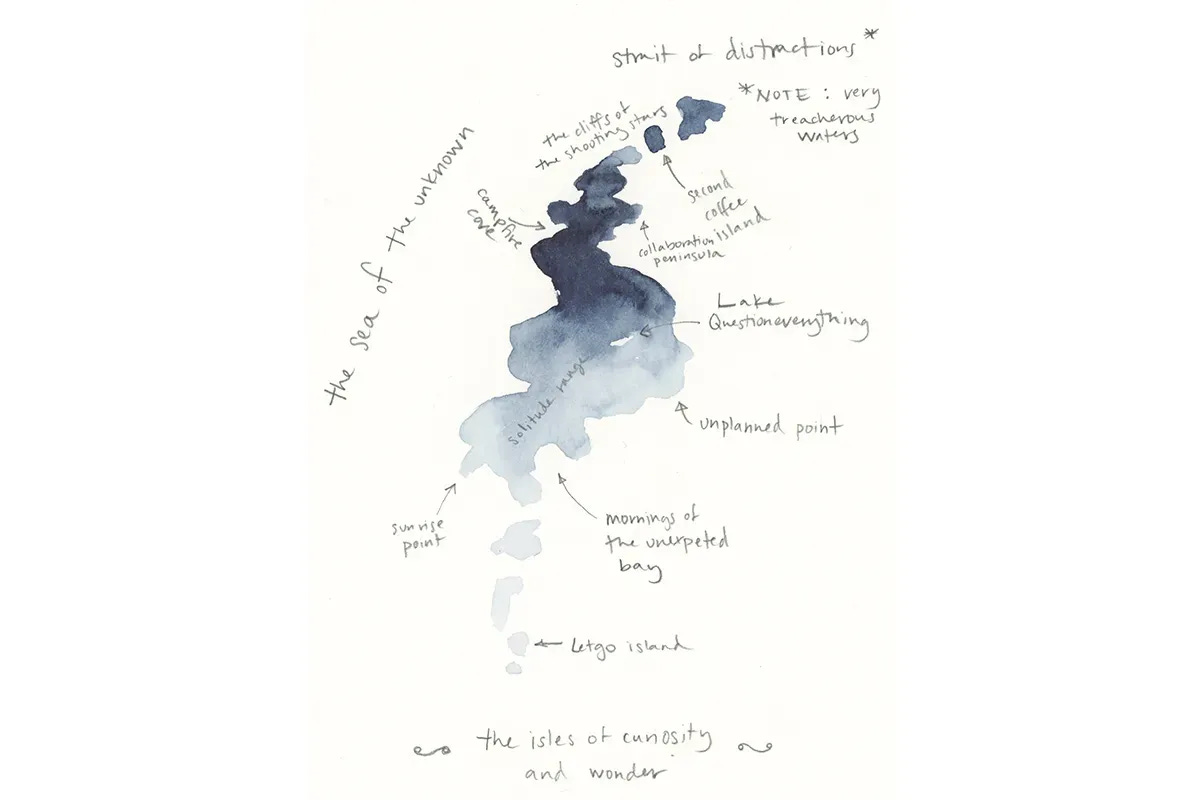 strait of distractions*
*NOTE: very
treacherous
waters
the cliffs of
the shooting stars
the sea of the unknown
campfire
cove
second
coffee
island
collaboration
peninsula
Lake
Questioneverything
solitude range
unplanned point
sunrise
point
mornings of
the unexpeted
bay
Letgo island
the isles of curiosity
and wonder